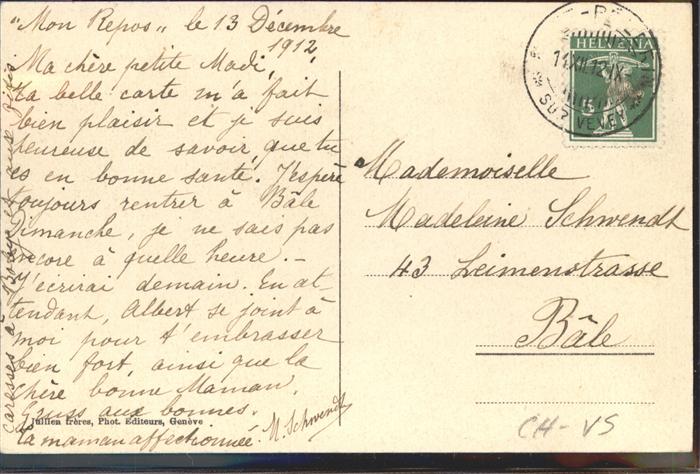 "Mon Repos" le 13 Décembre
1912,
Ma chère petite Madi,
Ta belle carte m'a fait
bien plaisir et je suis
heureuse de savoir, que tu
es en bonne santé. J'espère
toujours rentrer à Bâle
Dimanche, je ne sais pas
encore à quelle heure. -
J'écrirai demain. En at-
tendant, Albert se joint à
moi pour t'embrasser
bien fort, ainsi que la
chère bonne Maman.
Gruss aux bonnes.
Ta maman affectionnée. M. Schwendt
caresses à
Jullien frères, Phot. Editeurs, Genève
HELVETIA
5
SUR VEVEY
Mademoiselle
Madeleine Schwendt
43 Leimenstrasse
Bâle
CH-VS